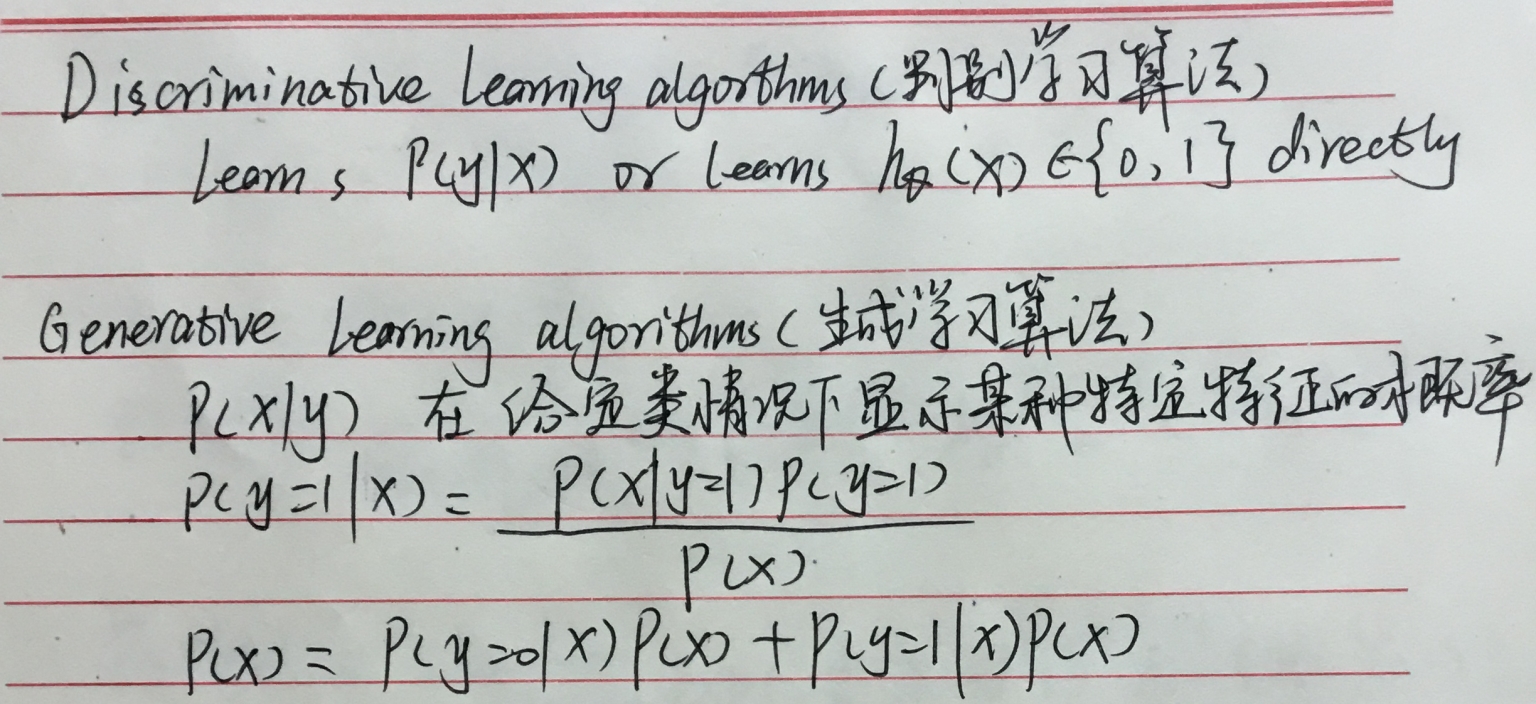 Discriminative Learning algorthms (判别学习算法)
Learns P(y|x) or learns hθ(x)∈{0,1} directly
Generative Learning algorithms (生成学习算法)
P(x|y) 在给定类情况下显示某种特定特征的概率
P(y=1|x) = P(x|y=1)P(y=1)
P(x)
P(x) = P(y=0|x)P(x) + P(y=1|x)P(x)